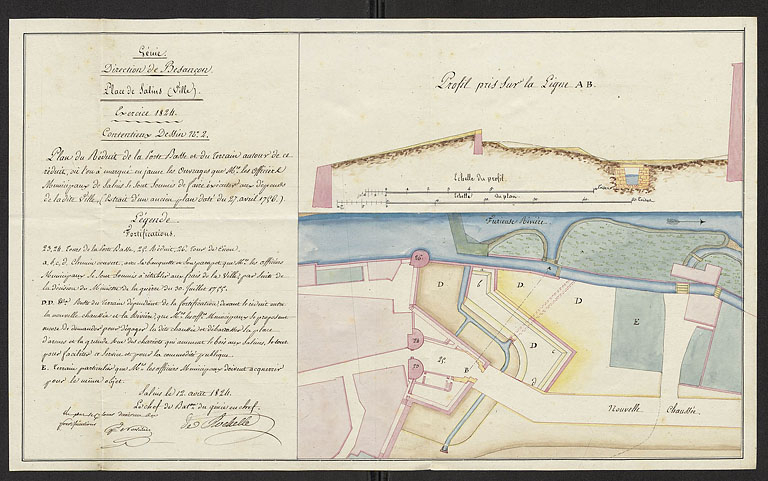 Génie.
Direction de Besançon.
Place de Salins (Ville).
Exercice 1824.
Contentieux Dessin Nº. 2.
Plan du Réduit de la Porte Basse et du terrain autour de ce
réduit, où l'on a marqué en jaune les Ouvrages que Mrs. les Officiers
Municipaux de Salins se sont soumis de faire exécuter aux dépends
de la dite Ville, (Extrait d'un ancien plan daté du 27 avril 1756.)
Légende.
Fortifications.
23, 24. Tours de la Porte Basse, 25. Réduit, 26. Tour de
a, b, c, d. Chemin couvert, avec sa banquette et son parapet, que Mrs. les officiers
Municipaux se sont soumis à rétablir aux frais de la Ville, par suite de
la décision du Ministre de la guerre du 30 Juillet 1755.
D.D. Partie du terrain dépendant de la fortification, devant le réduit entre
la nouvelle chaussée et la Rivière, que Mrs. les offrs. Municipaux se proposent
encore de demander pour dégager la dite chaussée et débarrasser la place
d'armes et la grande rue des chariots qui amènent le bois aux Salines, le tout
pour faciliter ce service et pour la commodité publique.
E. Terrain particulier que Mrs. les officiers Municipaux doivent acquérir
pour le même objet.
Salins le 12 avril 1824.
Le chef de Baton. du génie en chef
fortifications
Profil pris sur la Ligne AB.
Echelle du profil.
Echelle du plan.
Furieuse Rivière.
26.
A
D
b
D
D
E
24
25.
B
d
D
23
Nouvelle Chaussée.